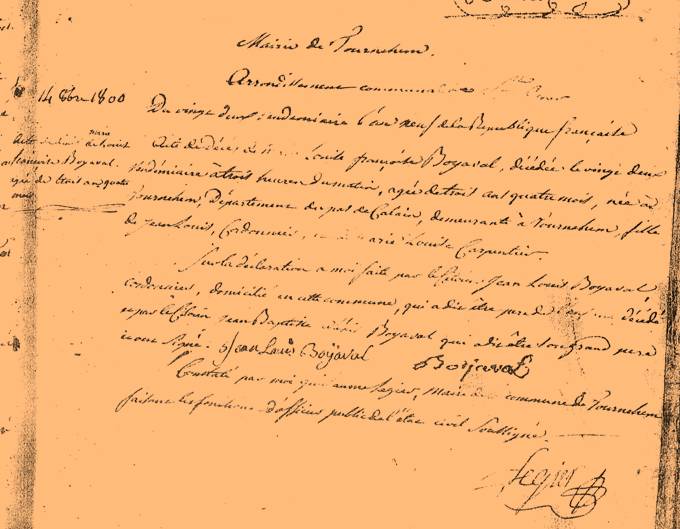 Mairie de Tournehem.
Arrondissement communal de St Omer
14 8bre 1800
Du vingt deux vendemiaire l'an neuf de la Republique française
Acte de décès de
Boyaval
agée de trois ans quatre
mois
Acte de Décès de Louise françoise Boyaval, décédée le vingt deux
vendémiaire à trois heures du matin, agée de trois ans quatre mois, née à
Tournehem, Département du pas de Calais, demeurante à Tournehem, fille
de Jean Louis, Cordonnier, et de Marie Louise Carpentier.
Sur la déclaration a moi faite par le Citoien Jean Louis Boyaval
cordonnier, domicilié en cette commune, qui a dit être pere de l'enfant décédé
et par le Citoien Jean Baptiste Boyaval qui a dit être son grand pere
et ont Signé. Jean Louis Boyaval Boyaval
Constaté par moi Legier, Maire de la commune de Tournehem
faisant les fonctions d'officier public de l'état civil Soussigné.
Legier